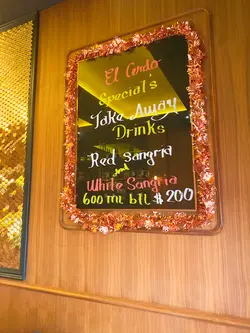 El Cerdo
Special's
Take Away
Drinks
Red Sangria
and
White Sangria
600 ml btl $200